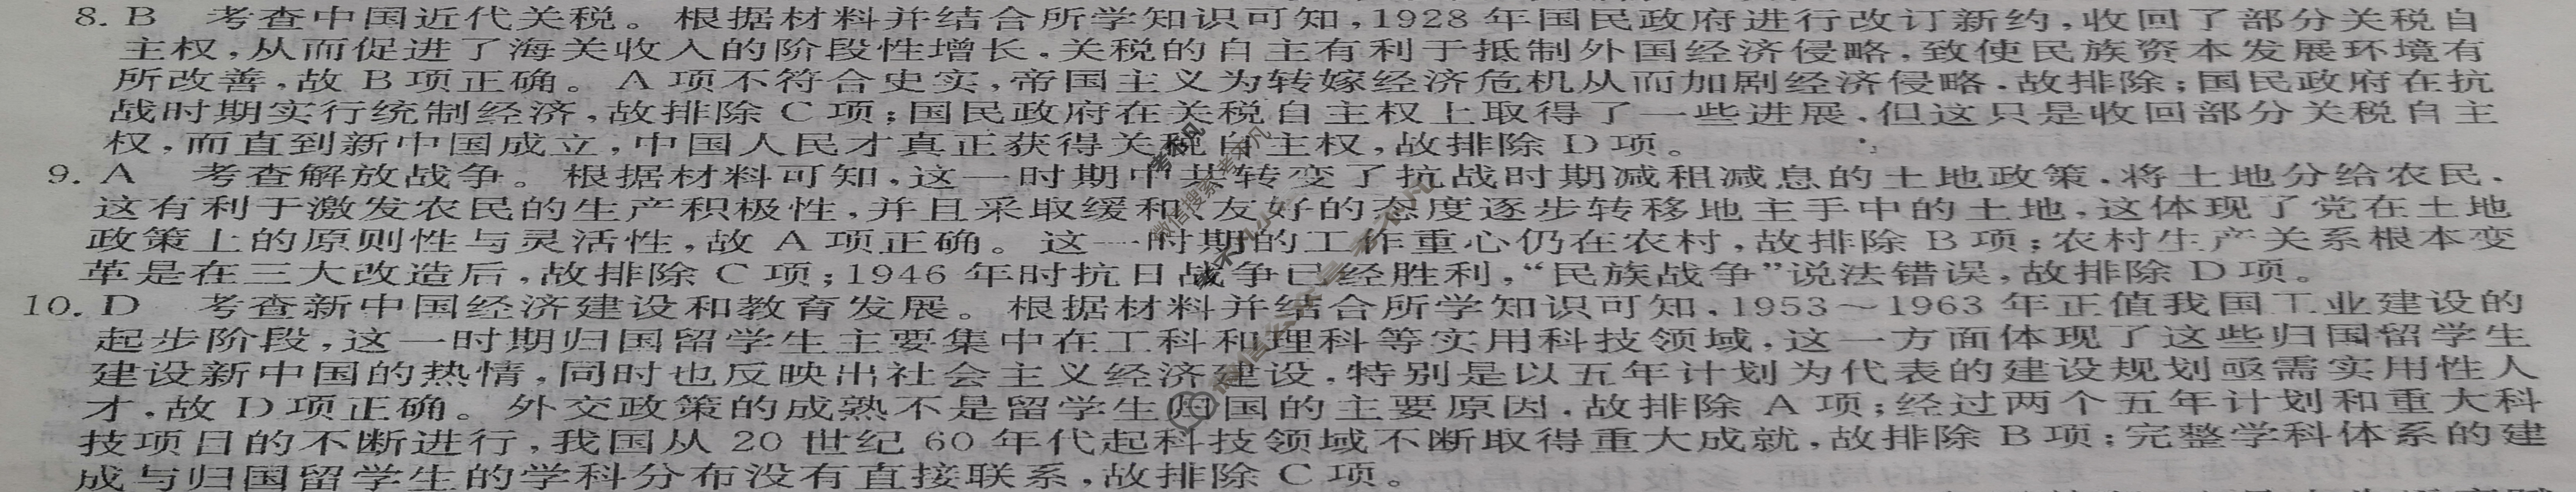 8. B 考查中国近代关税。根据材料并结合所学知识可知,1928年国民政府进行改订新约,收回了部分关税自
主权,从而促进了海关收入的阶段性增长,关税的自主有利于抵制外国经济侵略,致使民族资本发展环境有
所改善,故B项正确。A项不符合史实,帝国主义为转嫁经济危机从而加剧经济侵略,故排除;国民政府在抗
战时期实行统制经济,故排除C项;国民政府在关税自主权上取得了一些进展,但这只是收回部分关税自主
权,而直到新中国成立,中国人民才真正获得关税自主权,故排除D项。
9. A 考查解放战争。根据材料可知,这一时期中共转变了抗战时期减租减息的土地政策,将土地分给农民,
这有利于激发农民的生产积极性,并且采取缓和、友好的态度逐步转移地主手中的土地,这体现了党在土地
政策上的原则性与灵活性,故A项正确。这一时期的工作重心仍在农村,故排除B项;农村生产关系根本变
革是在三大改造后,故排除C项;1946年时抗日战争已经胜利,“民族战争”说法错误,故排除D项。
10. D 考查新中国经济建设和教育发展。根据材料并结合所学知识可知,1953～1963年正值我国工业建设的
起步阶段,这一时期归国留学生主要集中在工科和理科等实用科技领域,这一方面体现了这些归国留学生
建设新中国的热情,同时也反映出社会主义经济建设,特别是以五年计划为代表的建设规划亟需实用性人
才,故D项正确。外交政策的成熟不是留学生归国的主要原因,故排除A项;经过两个五年计划和重大科
技项目的不断进行,我国从20世纪60年代起科技领域不断取得重大成就,故排除B项;完整学科体系的建
成与归国留学生的学科分布没有直接联系,故排除C项。